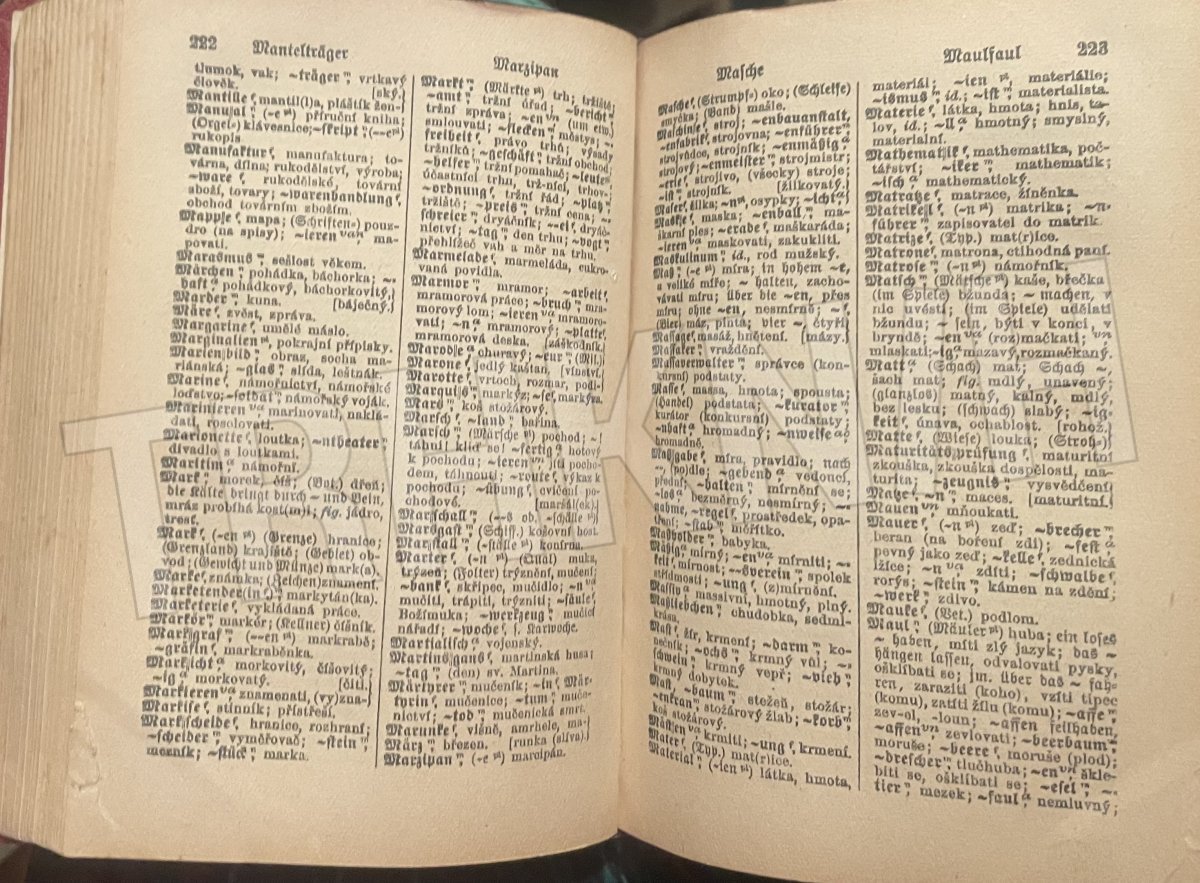 222 Mantelträger
tlumok, vak; ~träger m, vrtkavý
člověk. [ský.]
Mantille f, mantil(l)a, pláštík žen-
Manual n, (-e pl) příruční kniha;
(Orgel=) klávesnice; ~skript n, (-e pl)
rukopis.
Manufaktur f, manufaktura; to-
várna, dílna; rukodělství, výroba;
~ware f, rukodělské, tovární
zboží, tovary; ~warenhandlung f,
obchod továrním zbožím.
Mappe f, mapa; (Schriften=) pouz-
dro (na spisy); ~ieren va, ma-
povati.
Marasmus m, sešlost věkem.
Märchen n, pohádka, báchorka; ~-
haft a, pohádkový, báchorkovitý,
Marder m, kuna. [báječný.]
Märe f, zvěst, zpráva.
Margarine f, umělé máslo.
Marginalien pl, pokrajní přípisky.
Marienbild n, obraz, socha ma-
riánská; ~glas n, slída, leštnák.
Marine f, námořnictví, námořské
loďstvo; ~soldat m, námořský voják.
Marinieren va, marinovati, naklá-
dati, rosolovati.
Marionette f, loutka; ~ntheater n,
divadlo s loutkami.
Maritim a, námořní.
Mark n, morek, čís; (Bot.) dřeň;
die Kälte dringt durch ~ und Bein,
mráz probíhá kost(m)i; fig. jádro,
tresť.
Mark f, (-en pl) (Grenze) hranice;
(Grenzland) krajiště; (Gebiet) ob-
vod; (Gewicht und Münze) mark(a).
Marke f, známka; (Zeichen) znamení.
Marketender(in f) m, markytán(ka).
Marketerie f, vykládaná práce.
Markör m, markér; (Kellner) číšník.
Markgraf m, (-en pl) markrabě;
~gräfin f, markraběnka.
Markicht a, morkovitý, číšovitý;
~ig a, morkovatý. [čiti.]
Markieren va, znamenati, (vy)zna-
Markise f, stinník; přístřeší.
Markscheide f, hranice, rozhraní;
~scheider m, vyměřovač; ~stein m,
mezník; ~stück n, marka.
Marzipan
Markt m, (Märkte pl) trh; tržiště;
~amt n, tržní úřad; ~bericht m,
tržní správa; ~en vn, (um etw.)
smlouvati; ~flecken m, městys; ~-
freiheit f, právo trhů; výsady
tržníků; ~geschäft n, tržní obchod;
~helfer m, tržní pomahač; ~leute pl,
účastníci trhu, trž-níci, trhov-
~ordnung f, tržní řád; ~platz m,
tržiště; ~preis m, tržní cena; ~-
schreier m, dryáčník; ~ei f, dryáč-
nictví; ~tag m, den trhu; ~vogt m,
přehlížeč vah a měr na trhu.
Marmelade f, marmeláda, cukro-
vaná povidla.
Marmor m, mramor; ~arbeit f,
mramorová práce; ~bruch m, mra-
morový lom; ~ieren va, mramoro-
vati; ~n a, mramorový; ~platte f,
mramorová deska. [záškodník.]
Marode a, churavý; ~eur m, (Mil.)
Marone f, jedlý kaštan. [vínství.]
Marotte f, vrtoch, rozmar, podi-
Marquis m, markýz; ~se f, markýza.
Mars m, koš stožárový.
Marsch f, ~land n, bařina.
Marsch m, (Märsche pl) pochod; ~!
táhni! kliď se! ~fertig a, hotový
k pochodu; ~ieren vn, jíti pocho-
dem, táhnouti; ~route f, výkaz k
pochodu; ~übung f, cvičení po-
chodové. [maršál(ek).]
Marschall m, (-s ob. -schälle pl)
Marsgast m, (Schiff.) košovní host.
Marstall m, (-ställe pl) konírna.
Marter f, (-n pl) (Qual) muka,
trýzeň; (Folter) trýznění, mučení
~bank f, skřipec, mučidlo; ~n va,
mučiti, trápiti, trýzniti; ~säule f,
Božímuka; ~werkzeug n, mučicí
nářadí; ~woche f, s. Karwoche.
Martialisch a, vojenský.
Martinsgans f, martinská husa;
~tag m, (den) sv. Martina.
Märtyrer m, mučeník; ~in f, Mär-
tyrin f, mučenice; ~tum n, muče-
nictví; ~tod m, mučenická smrt.
Marunke f, vlaně, amrhele, ma-
März m, březen. [runka (slíva).]
Marzipan m, (-e pl) marcipán.
Masche
Masche f, (Strumpf=) oko; (Schleife)
smyčka; (Band) mašle.
Maschine f, stroj; ~enbauanstalt,
~enfabrik f, strojovna; ~enführer m,
strojvůdce, strojník; ~enmäßig a,
strojový; ~enmeister m, strojmistr;
~erie f, strojivo, (všecky) stroje;
~ist m, strojník. [žilkovatý.]
Maser f, žilka; ~n pl, osypky; ~icht a,
Maske f, maska; ~enball m, ma-
škarní ples; ~erade f, maškaráda;
~ieren va, maskovati, zakukliti.
Maskulinum n, id., rod mužský.
Maß n, (-e pl) míra; in hohem ~e,
a veliké míře; ~ halten, zacho-
vávati míru; über die ~en, přes
míru; ohne ~en, nesmírně; ~ f,
(Bier) máz, pinta; vier ~, čtyři
Massage f, masáž, hnětení. [mázy.]
Massaker n, vraždění.
Masseverwalter m, správce (kon-
kursní) podstaty.
Masse f, massa, hmota; spousta;
(Handel) podstata; ~kurator m,
kurátor (konkursní) podstaty;
~nhaft a, hromadný; ~nweise a ad,
hromadně.
Maßgabe f, míra, pravidlo; nach
~, (po)dle; ~gebend a, vedoucí,
přední; ~halten n, mírnění se;
~los a, bezměrný, nesmírný; ~-
nahme f, ~regel f, prostředek, opa-
tření; ~stab m, měřítko.
Maßholder m, babyka.
Mäßig a, mírný; ~en va, mírniti; ~-
keit f, mírnost; ~sverein m, spolek
střídmosti; ~ung f, (z)mírnění.
Massiv a, massivní, hmotný, plný.
Maßliebchen n, chudobka, sedmi-
kráska.
Mast f, žír, krmení; ~darm m, ko-
nečník; ~ochs m, krmný vůl; ~-
schwein n, krmný vepř; ~vieh n,
krmný dobytek.
Mast m, ~baum m, stežeň, stožár;
stožárový žlab; ~korb m,
koš stožárový.
Mästen va, krmiti; ~ung f, krmení.
Mater f, (Typ.) mat(r)ice.
Material n, (-ien pl) látka, hmota,
Maulfaul 223
materiál; ~ien pl, materiálie;
~ismus m, id.; ~ist m, materialista.
Materie f, látka, hmota; hnis, ta-
lov, id.; ~ll a, hmotný; smyslný,
materialní.
Mathematik f, mathematika, poč-
tářství; ~iker m, mathematik;
~isch a, mathematický.
Matratze f, matrace, žíněnka.
Matrikel f, (-n pl) matrika; ~n-
führer m, zapisovatel do matrik.
Matrize f, (Typ.) mat(r)ice.
Matrone f, matrona, ctihodná paní.
Matrose m, (-n pl) námořník.
Matsch m, (Mätsche pl) kaše, břečka
(im Spiele) bžunda; ~ machen, v
nic uvésti; (im Spiele) udělati
bžundu; ~ sein, býti v konci, v
bryndě; ~en va, (roz)mačkati; vn
mlaskati; ~ig a, mazavý, rozmačkaný.
Matt a, (Schach) mat; Schach ~,
šach mat; fig. mdlý, unavený;
(glanzlos) matný, kalný, mdlý,
bez lesku; (schwach) slabý; ~ig-
keit f, únava, ochablost. [rohož.]
Matte f, (Wiese) louka; (Stroh=)
Maturitätsprüfung f, maturitní
zkouška, zkouška dospělosti, ma-
turita; ~zeugnis n, vysvědčení
Matze f, ~n m, maces. [maturitní.]
Mauen vn, mňoukati.
Mauer f, (-n pl) zeď; ~brecher m,
beran (na boření zdí); ~fest a,
pevný jako zeď; ~kelle f, zednická
lžíce; ~n va, zdíti; ~schwalbe f,
rorýs; ~stein m, kámen na zdění;
~werk n, zdivo.
Mauke f, (Vet.) podlom.
Maul n, (Mäuler pl) huba; ein loses
~ haben, míti zlý jazyk; das ~
hängen lassen, odvalovati pysky,
ošklíbati se; jm. über das ~ fah-
ren, zaraziti (koho), vzíti tipec
(komu), zatíti žílu (komu); ~affe m,
zev-el, -loun; ~affen feilhaben,
~affen vn, zevlovati; ~beerbaum m,
moruše; ~beere f, moruše (plod);
~drescher m, tlučhuba; ~en vn, škle-
biti se, ošklíbati se; ~esel m, ~-
tier n, mezek; ~faul a, nemluvný;